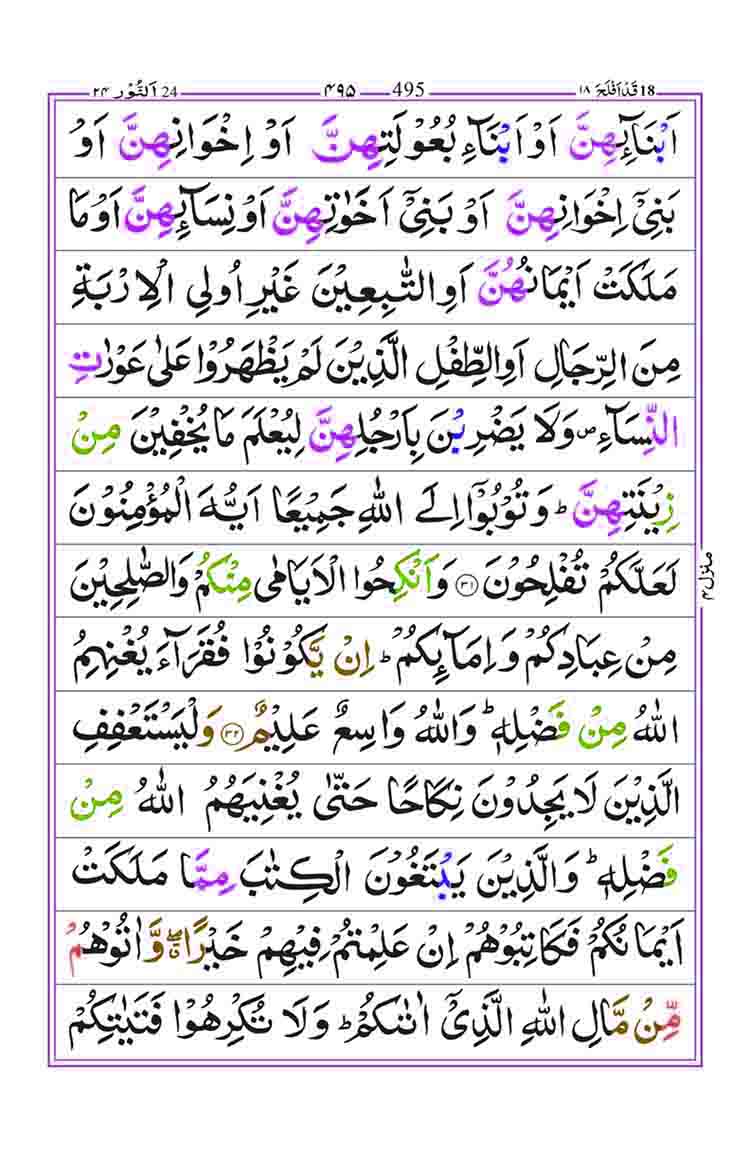 18 قَدْ اَفْلَحَ ۱۸ 495 ۴۹۵ 24 اَلنُّوْر ۲۴
اَبْنَآئِهِنَّ اَوْ اَبْنَآءِ بُعُوْلَتِهِنَّ اَوْ اِخْوَانِهِنَّ اَوْ
بَنِیْۤ اِخْوَانِهِنَّ اَوْ بَنِیْۤ اَخَوٰتِهِنَّ اَوْ نِسَآئِهِنَّ اَوْ مَا
مَلَكَتْ اَیْمَانُهُنَّ اَوِ التّٰبِعِیْنَ غَیْرِ اُولِی الْاِرْبَةِ
مِنَ الرِّجَالِ اَوِ الطِّفْلِ الَّذِیْنَ لَمْ یَظْهَرُوْا عَلٰی عَوْرٰتِ
النِّسَآءِ ۪ وَلَا یَضْرِبْنَ بِاَرْجُلِهِنَّ لِیُعْلَمَ مَا یُخْفِیْنَ مِنْ
زِیْنَتِهِنَّ ؕ وَ تُوْبُوْۤا اِلَی اللّٰهِ جَمِیْعًا اَیُّهَ الْمُؤْمِنُوْنَ
لَعَلَّكُمْ تُفْلِحُوْنَ ۝۳۱ وَ اَنْكِحُوا الْاَیَامٰی مِنْكُمْ وَالصّٰلِحِیْنَ
مِنْ عِبَادِكُمْ وَ اِمَآئِكُمْ ؕ اِنْ یَّكُوْنُوْا فُقَرَآءَ یُغْنِهِمُ
اللّٰهُ مِنْ فَضْلِهٖ ؕ وَاللّٰهُ وَاسِعٌ عَلِیْمٌ ۝۳۲ وَلْیَسْتَعْفِفِ
الَّذِیْنَ لَا یَجِدُوْنَ نِكَاحًا حَتّٰی یُغْنِیَهُمُ اللّٰهُ مِنْ
فَضْلِهٖ ؕ وَالَّذِیْنَ یَبْتَغُوْنَ الْكِتٰبَ مِمَّا مَلَكَتْ
اَیْمَانُكُمْ فَكَاتِبُوْهُمْ اِنْ عَلِمْتُمْ فِیْهِمْ خَیْرًا ۖۗ وَّاٰتُوْهُمْ
مِّنْ مَّالِ اللّٰهِ الَّذِیْۤ اٰتٰىكُمْ ؕ وَلَا تُكْرِهُوْا فَتَیٰتِكُمْ
منزل ۴